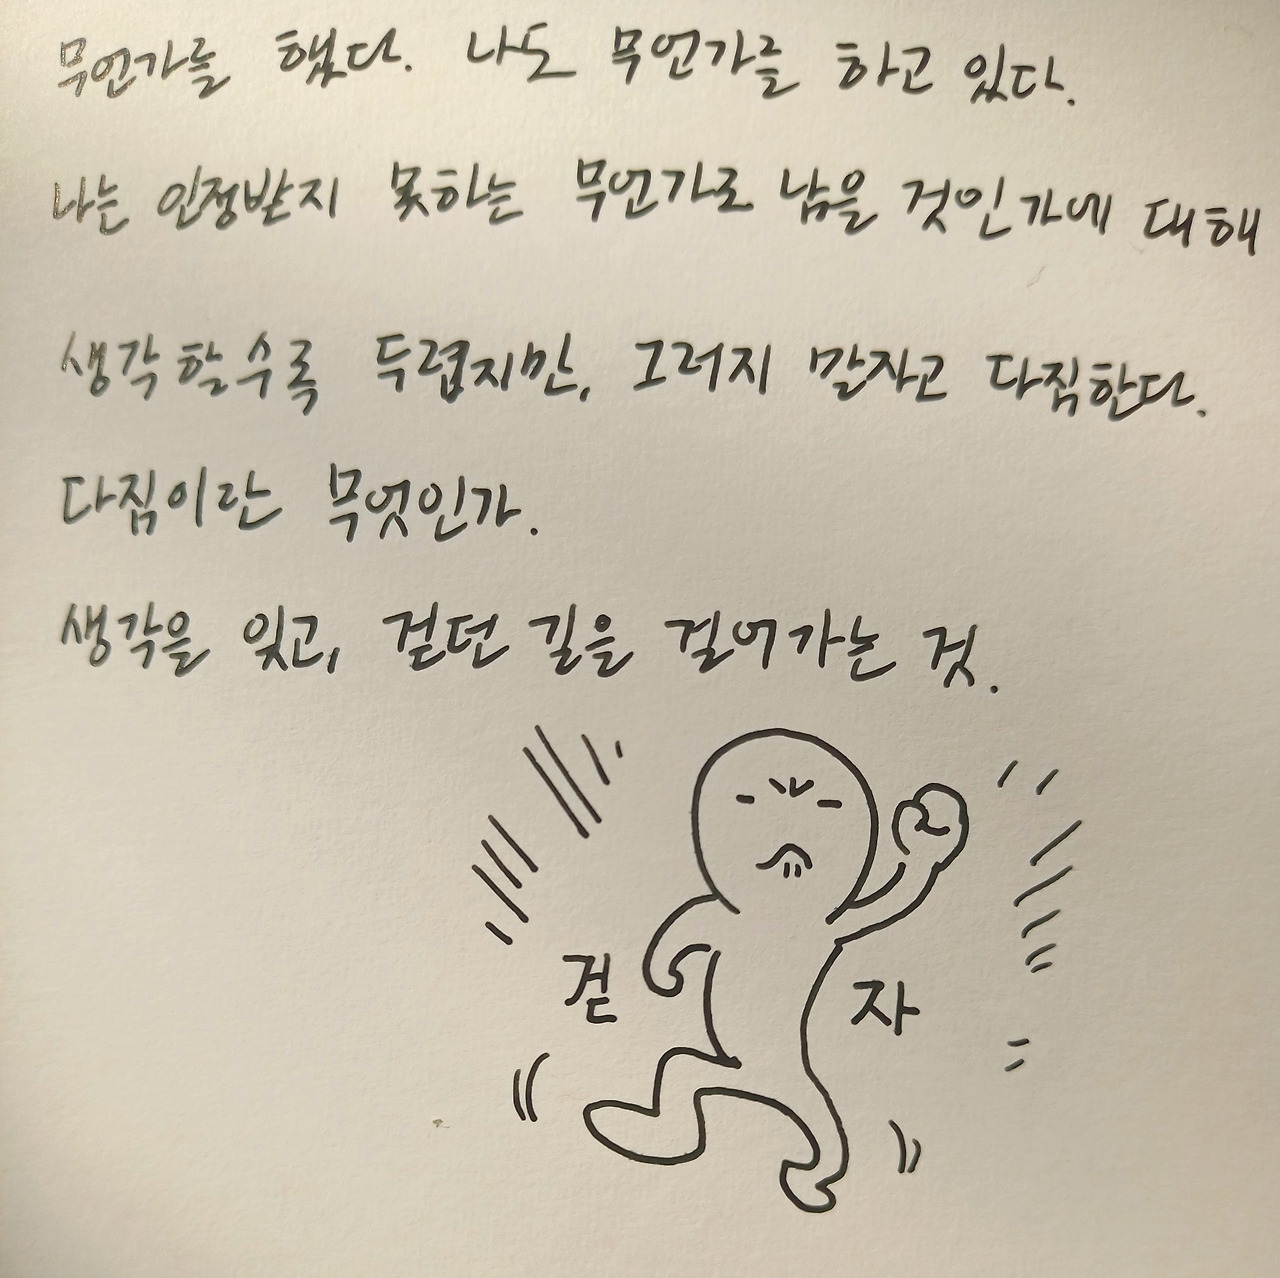 무언가를 했다. 나도 무언가를 하고 있다.
나는 인정받지 못하는 무언가로 남을 것인가에 대해
생각할수록 두렵지만, 그러지 말자고 다짐한다.
다짐이란 무엇인가.
생각을 잊고, 걷던 길을 걸어가는 것.
걷 자